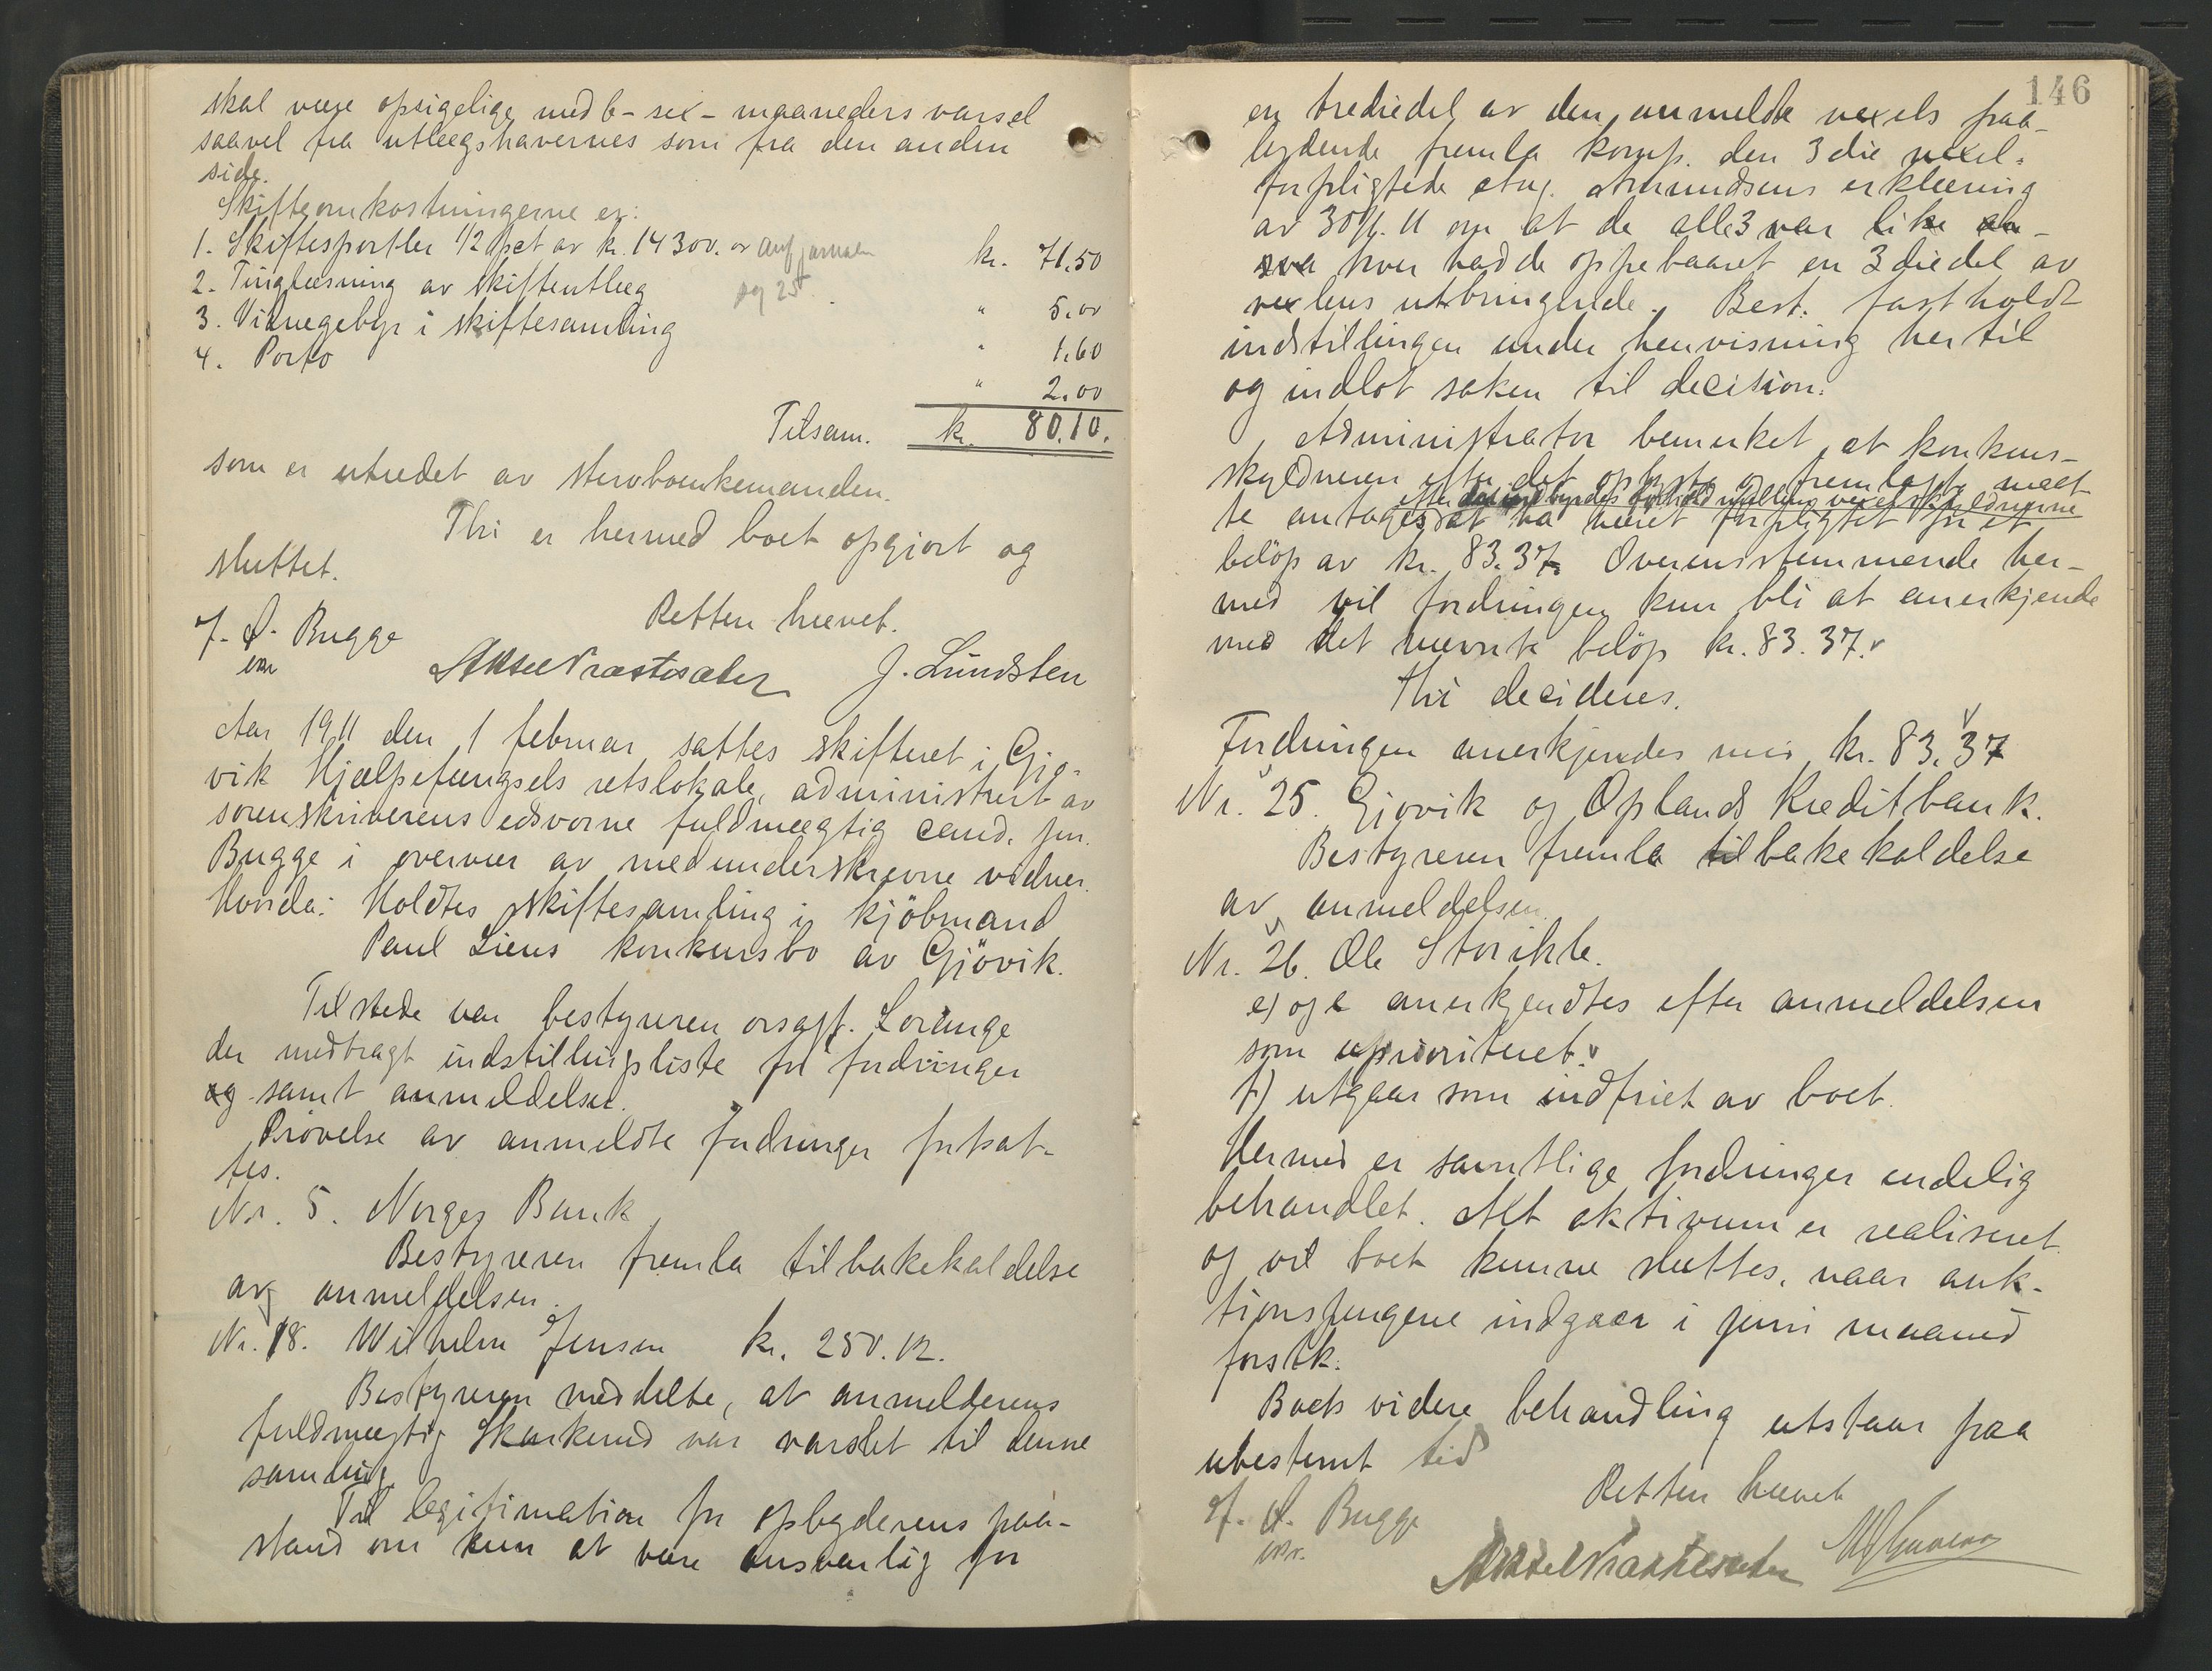 skal være opsigelige med 6 - sex - maaneders varsel
saavel fra utlægshavernes som fra den anden
side.
Skifteomkostningerne er:
1. Skiftesportler 1/2 pct av kr. 14300. kr. 71.50
2. Tinglæsning av skifteutlæg " 5.00
3. Vidnegebyr i skiftesamling " 1.60
4. Porto " 2.00
og 25
Tilsam. kr. 80.10.
som er utredet av stervboenkemanden.
Thi er hermed boet opgjort og
sluttet.
Retten hævet.
F. D. Bugge
J. Lundsten
Aar 1911 den 1 februar sattes skifteret i Gjø-
vik Hjælpefængsels retslokale, administrert av
sorenskriverens edsvorne fuldmægtig cand. jur.
Bugge i overvær av medunderskrevne vidner.
Hvorda: Holdtes skiftesamling i kjöbmand
Paul Liens konkursbo av Gjövik.
Tilstede var bestyreren orsagf. Lorange
der medbragt indstillingsliste for fordringer
og samt anmeldelser.
Prövelse av anmeldte fordringer fortsat-
tes.
Nr. 5. Norges Bank
Bestyreren fremla tilbakekaldelse
av anmeldelsen.
Nr. 18. Wilhelm Jensen kr. 250.12.
Bestyreren meddelte, at anmelderens
fuldmægtig Skarkerud var varslet til denne
samling.
Til legitimation for opbyderens paa-
stand om kun at være ansvarlig for
146
en trediedel av den anmeldte vexels paa-
lydende fremla komp. den 3die vexel-
forpligtede Aug. Amundsens erklæring
av 30/1. 11 om at de alle 3 var like an-
sva hver hadde oppebaaret en 3diedel av
vexlens utbringende. Best. fastholdt
indstillingen under henvisning hertil
og indlot saken til decision.
Administrator bemerket, at konkurs-
skyldneren efter det oplyste og fremlagte maat-
efter det indbyrdes forhold mellem vexelskyldnerne
te antages at ha været forpligtet for et
belöp av kr. 83.37. Overensstemmende her-
med vil fordringen kun bli at anerkjende
med det nævnte belöp kr. 83.37.
Thi decideres.
Fordringen anerkjendes med kr. 83.37
Nr. 25. Gjövik og Oplands Kreditbank.
Bestyreren fremla tilbakekaldelse
av anmeldelsen.
Nr. 26. Ole Storikle.
e) og anerkjendtes efter anmeldelsen
som uprioritert.
f) utgaar som indfriet av boet.
Hermed er samtlige fordringer endelig
behandlet. Alt aktivum er realisert
og vil boet kunne sluttes, naar auk-
tionspengene indgaar i juni maaned
förstk.
Boets videre behandling utstaar paa
ubestemt tid
Retten hævet
F. D. Bugge